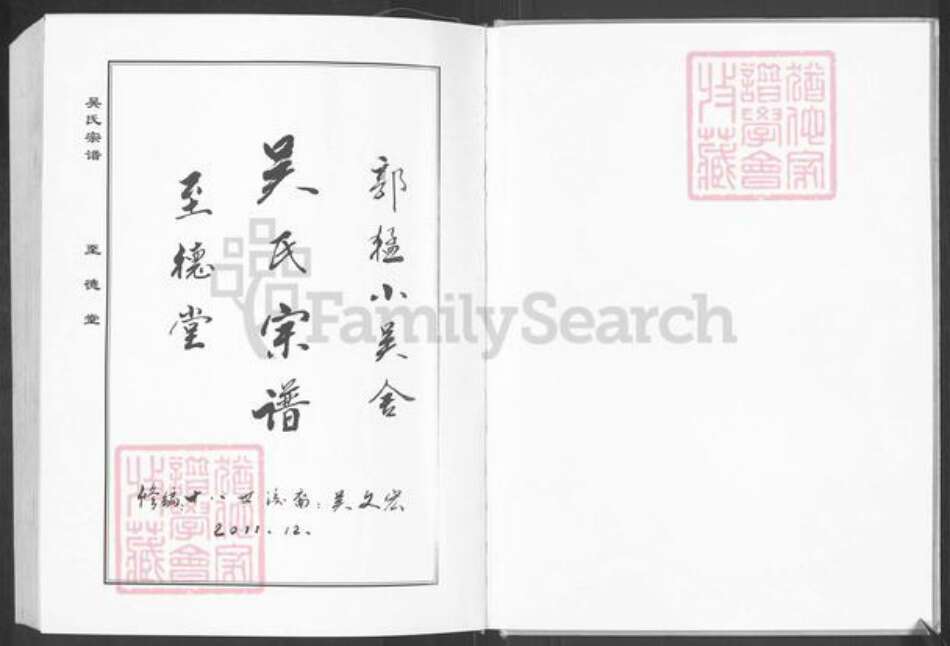 吴氏宗谱
至德堂
郭猛小吴舍
吴氏宗谱
至德堂
修编:十八世后裔:吴文宏
2011.12.
猶他家
譜學會
收藏
猶他家
譜學會
收藏
FamilySearch